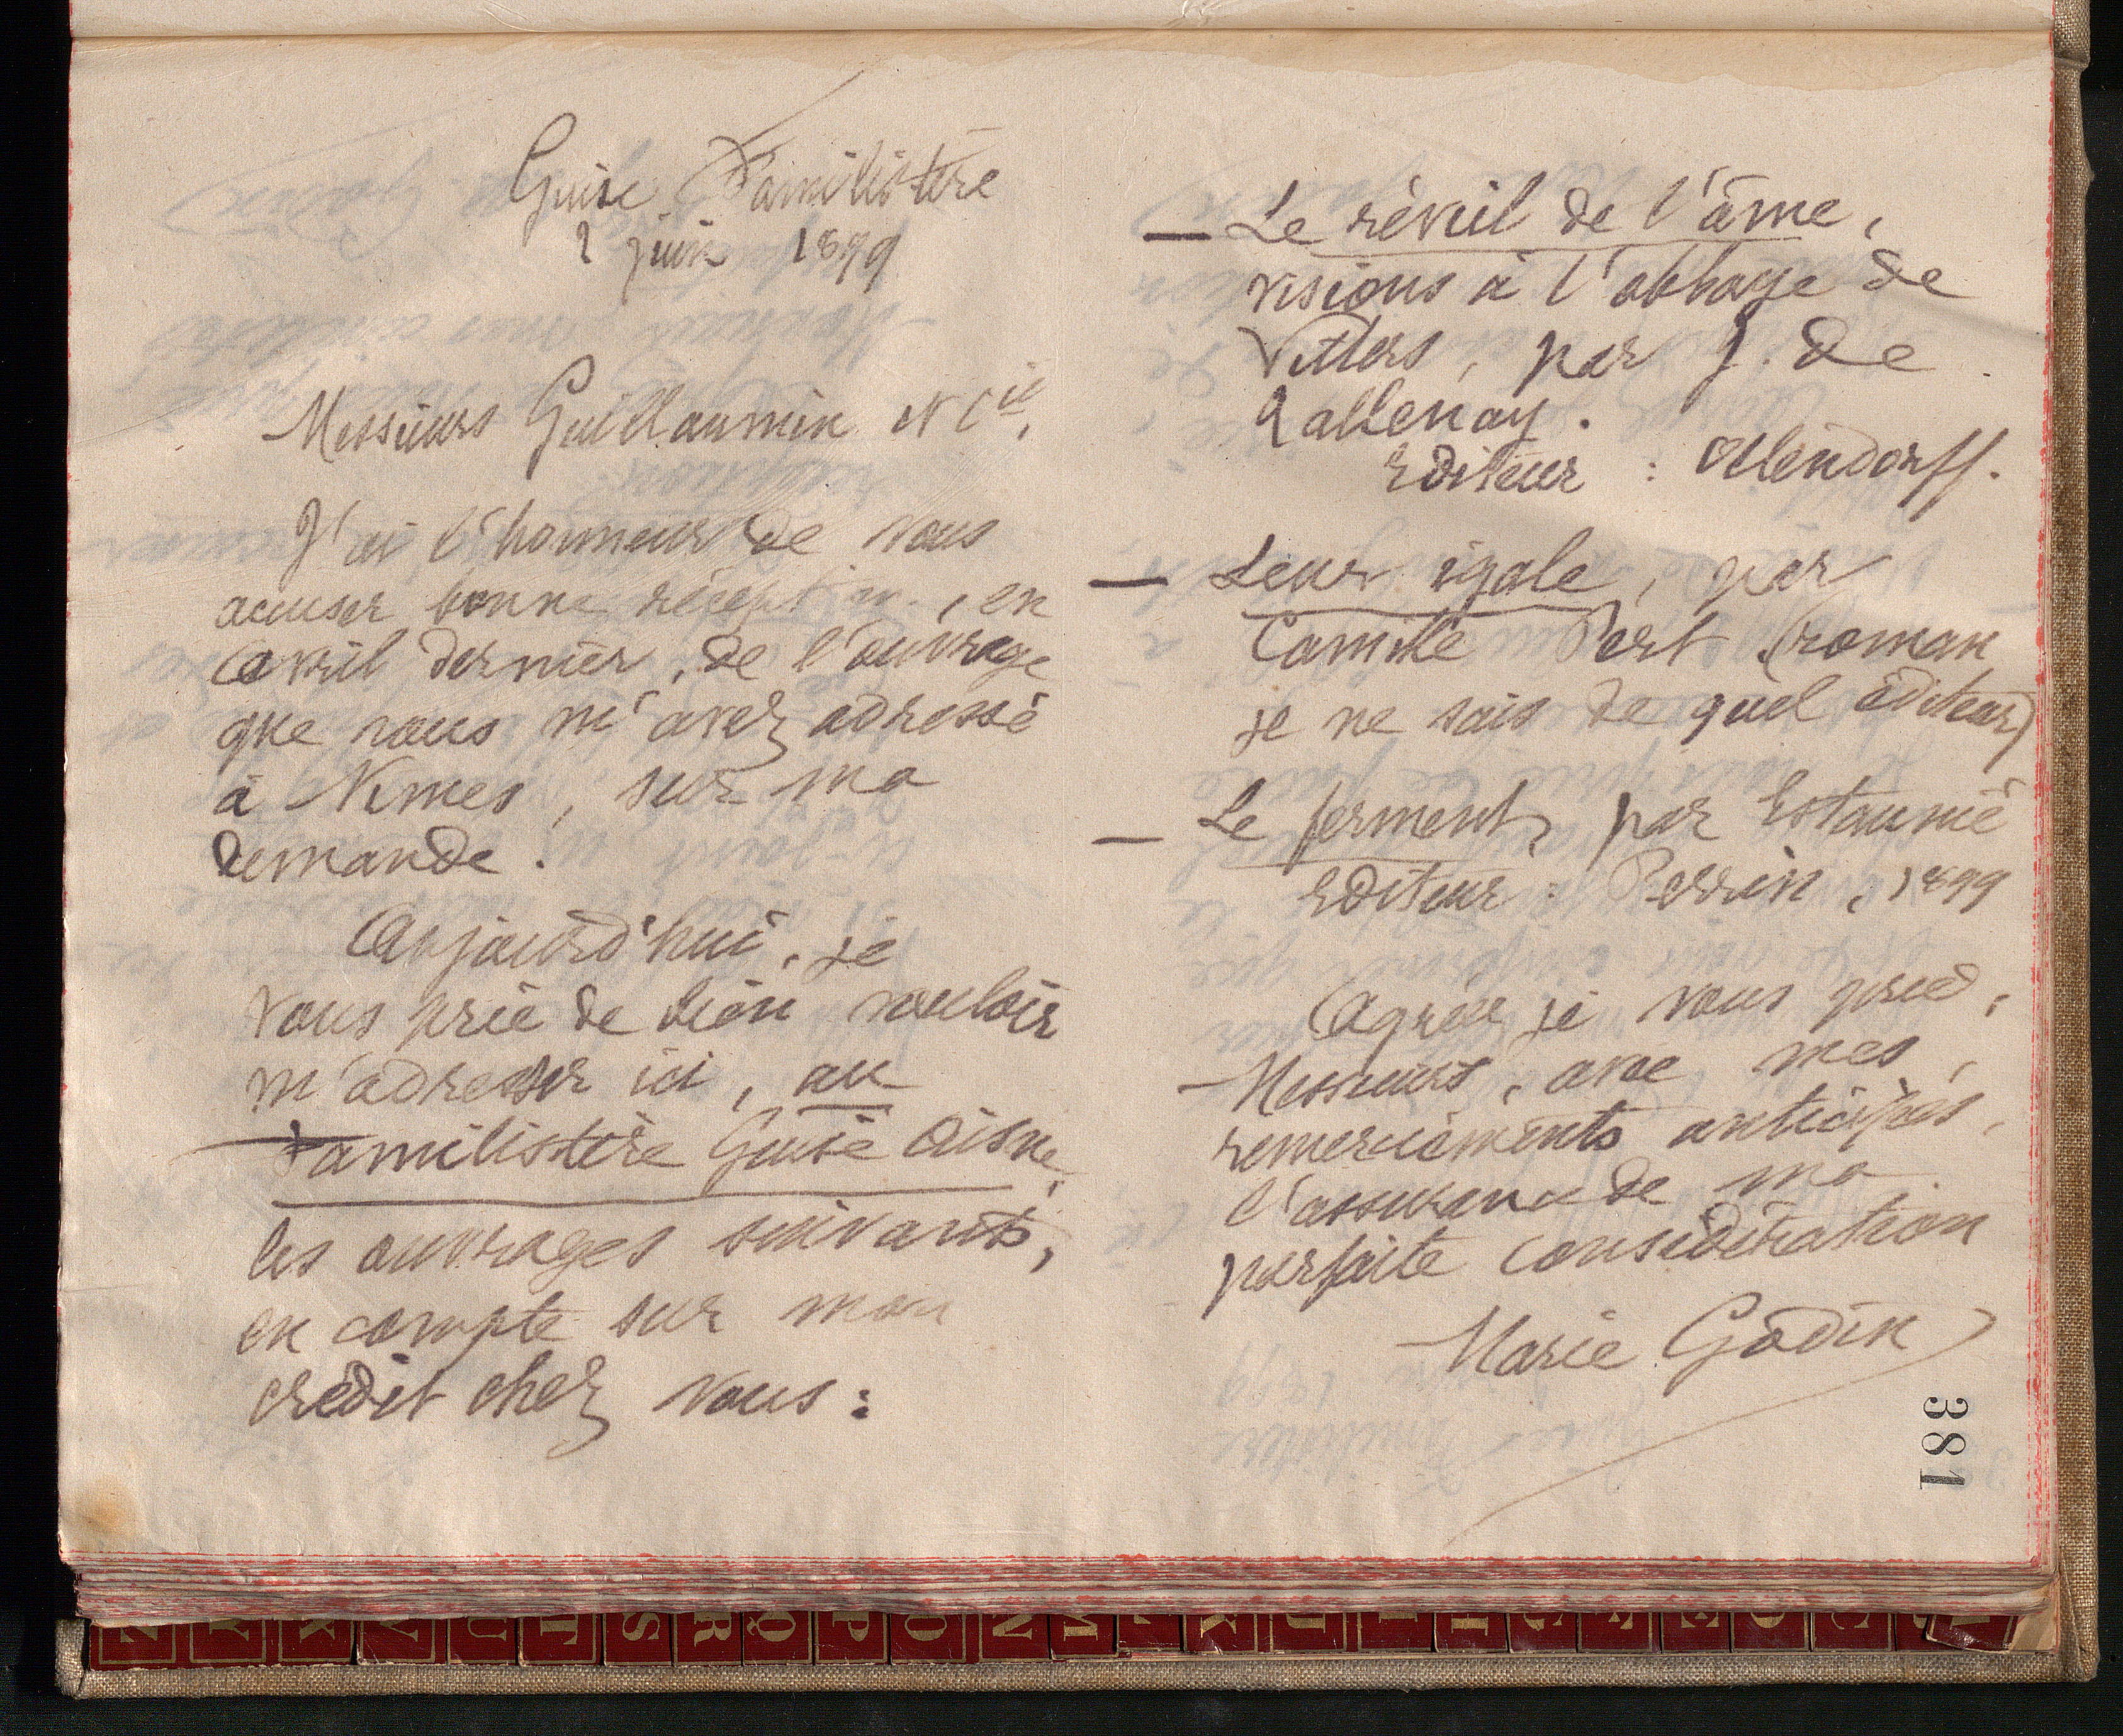 Guise Familistère
2 juin 1899
Messieurs Guillaumin et Cie,
J'ai l'honneur de vous
accuser bonne réception, en
avril dernier, de l'ouvrage
que vous m'avez adressé
à Nîmes, sur ma
demande.
Aujourd'hui, je
vous prie de bien vouloir
m'adresser ici, au
Familistère Guise Aisne,
les ouvrages suivants,
en compte sur mon
crédit chez vous :
— Le réveil de l'âme,
visions à l'abbaye de
Villers, par J. de
Tallenay.
Editeur : Ollendorff.
— Leur égale, par
Camille Pert (roman
je ne sais de quel éditeur)
— Le ferment, par Estaunié
Editeur : Perrin, 1899
Agréez je vous prie,
Messieurs, avec mes
remerciements anticipés,
l'assurance de ma
parfaite considération
Marie Godin
381
Z Y X V U T S R Q P O N M L K J I H G F E D C B